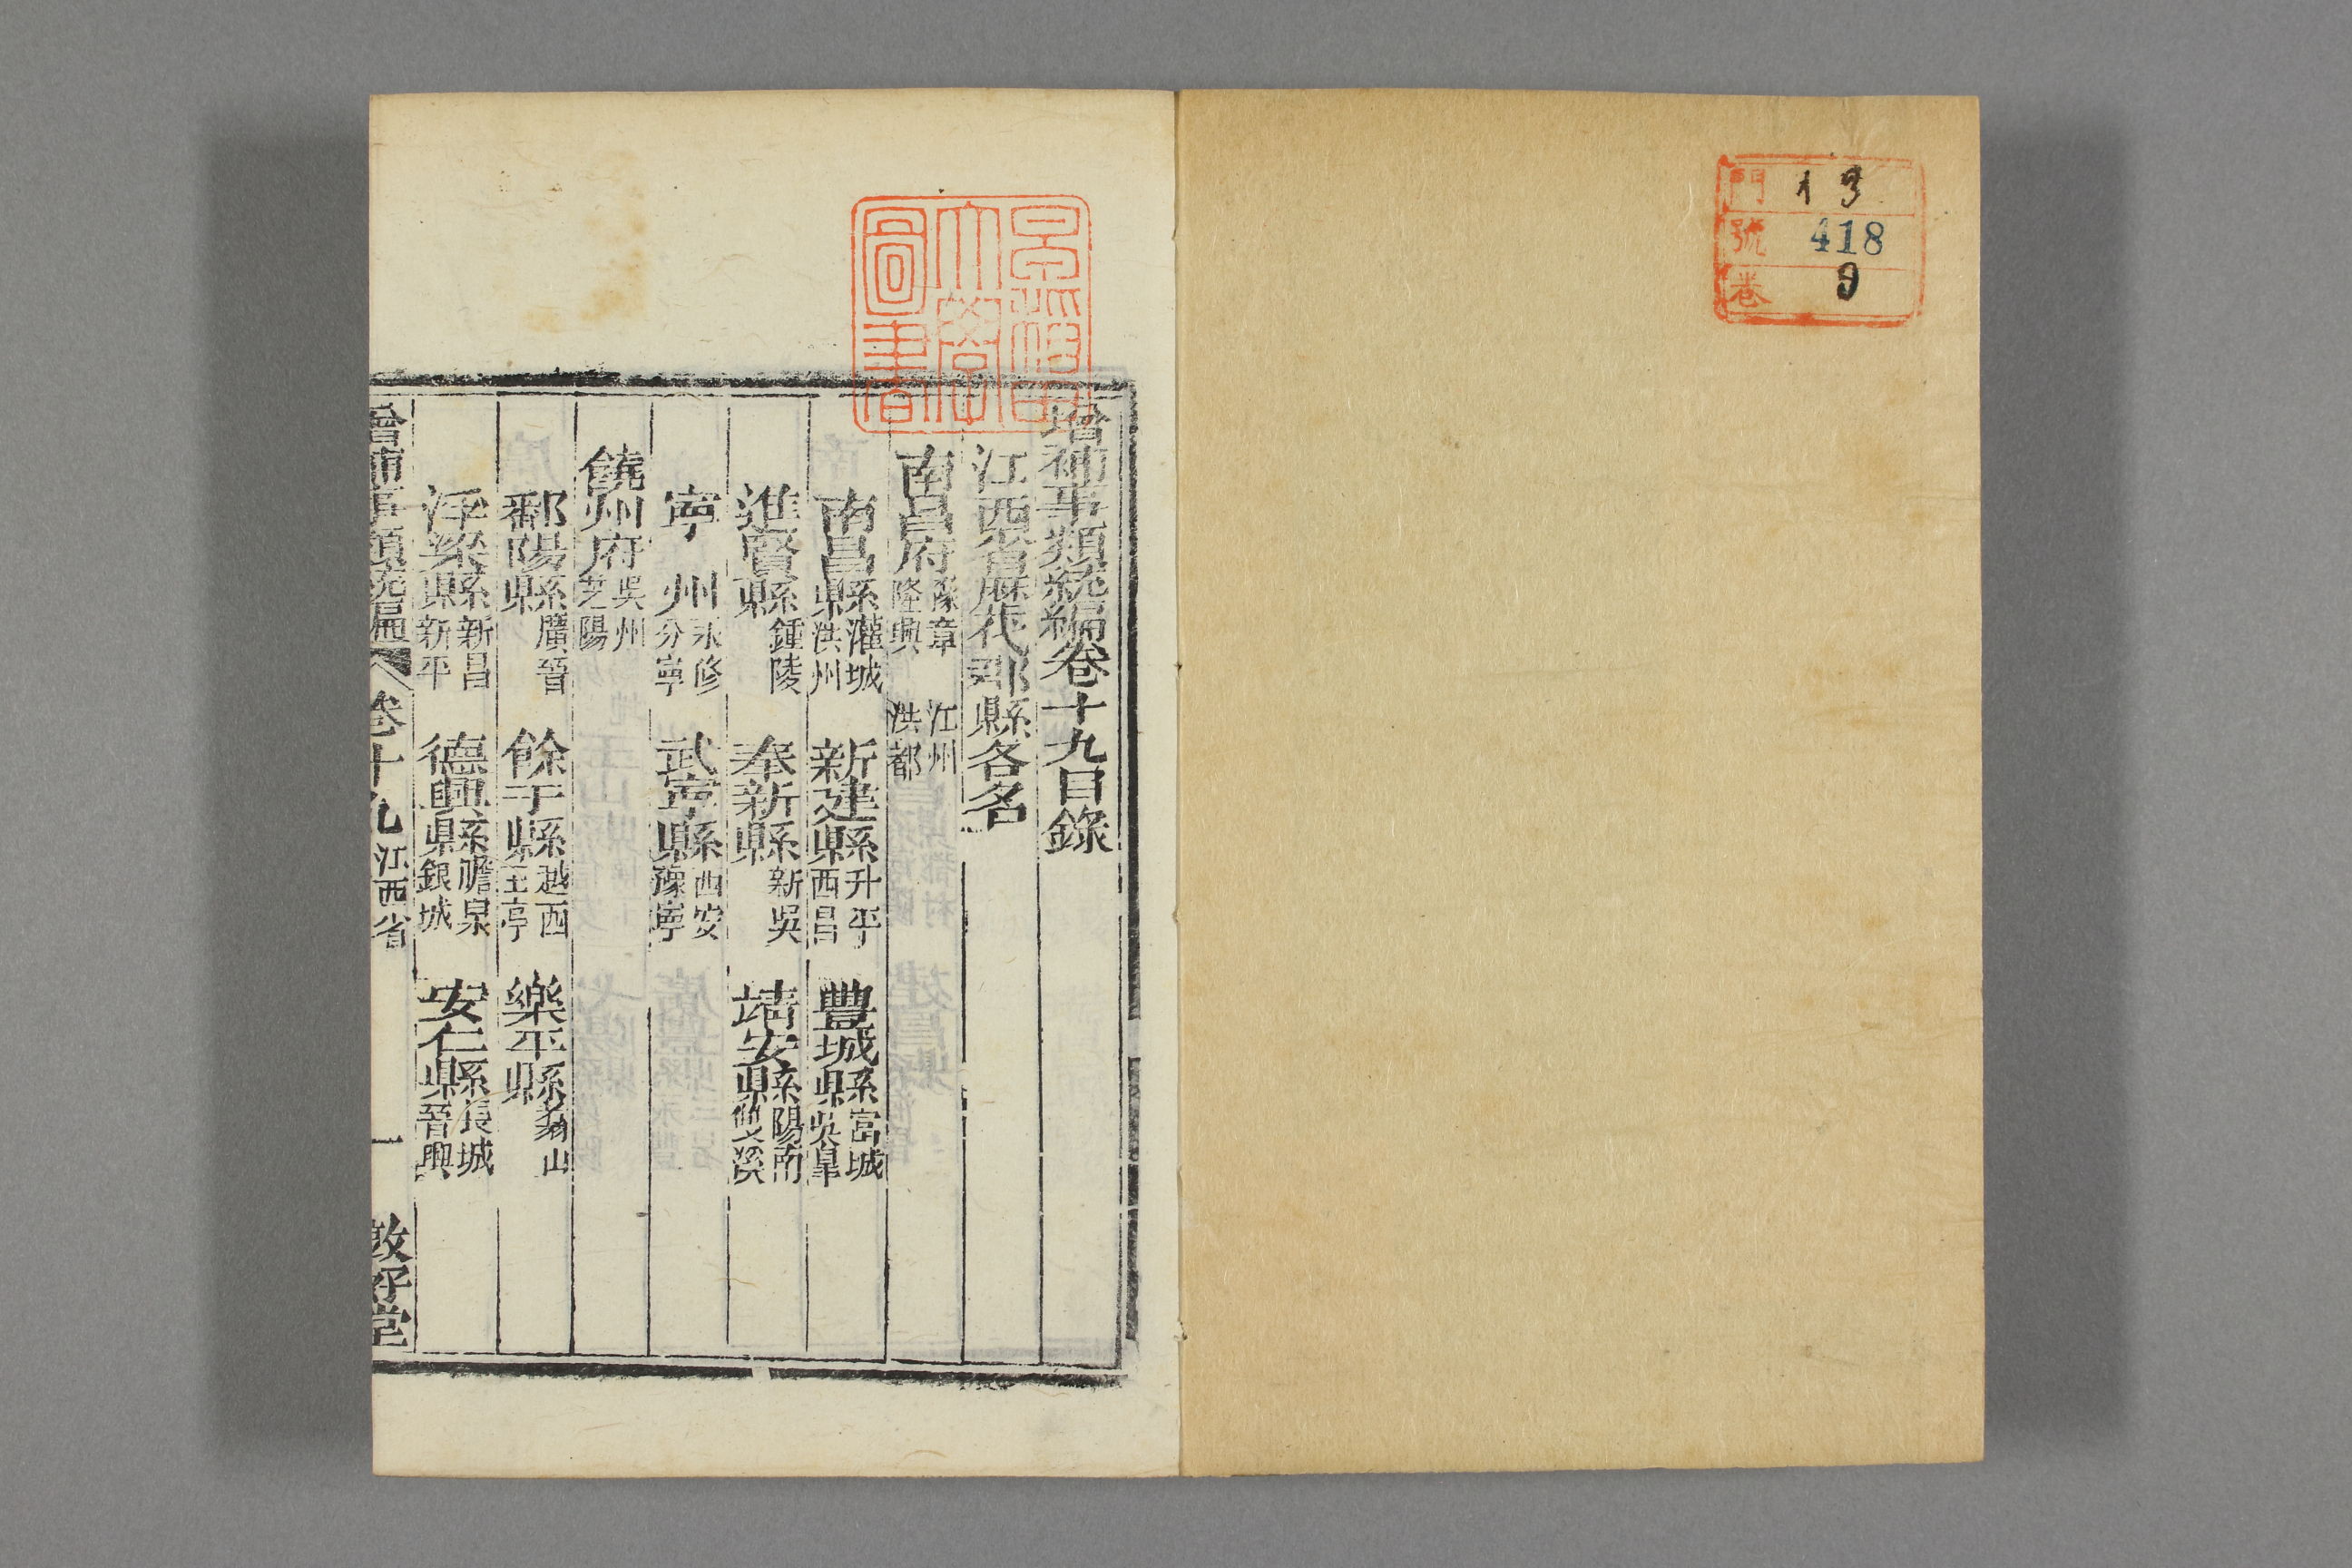 門 13
號 418
卷 9
圖書
增補事類統編卷十九目錄
江西省歷代郡縣各名
南昌府 豫章 隆興 江州 洪都
南昌縣 灌城 洪州 新建縣 升平 西昌 豐城縣 富城 吳臯
進賢縣 鍾陵 奉新縣 新吳 靖安縣 陽南 雙溪
寕州 永修 分寧 武寕縣 西安 豫寧
饒州府 吳州 芝陽
鄱陽縣 廣晉 餘干縣 越西 玉亭 樂平縣 山
浮梁縣 新昌 新平 德興縣 泉 銀城 安仁縣 長城 晉興
增補事類統編 卷十九 江西省 一 敦好堂